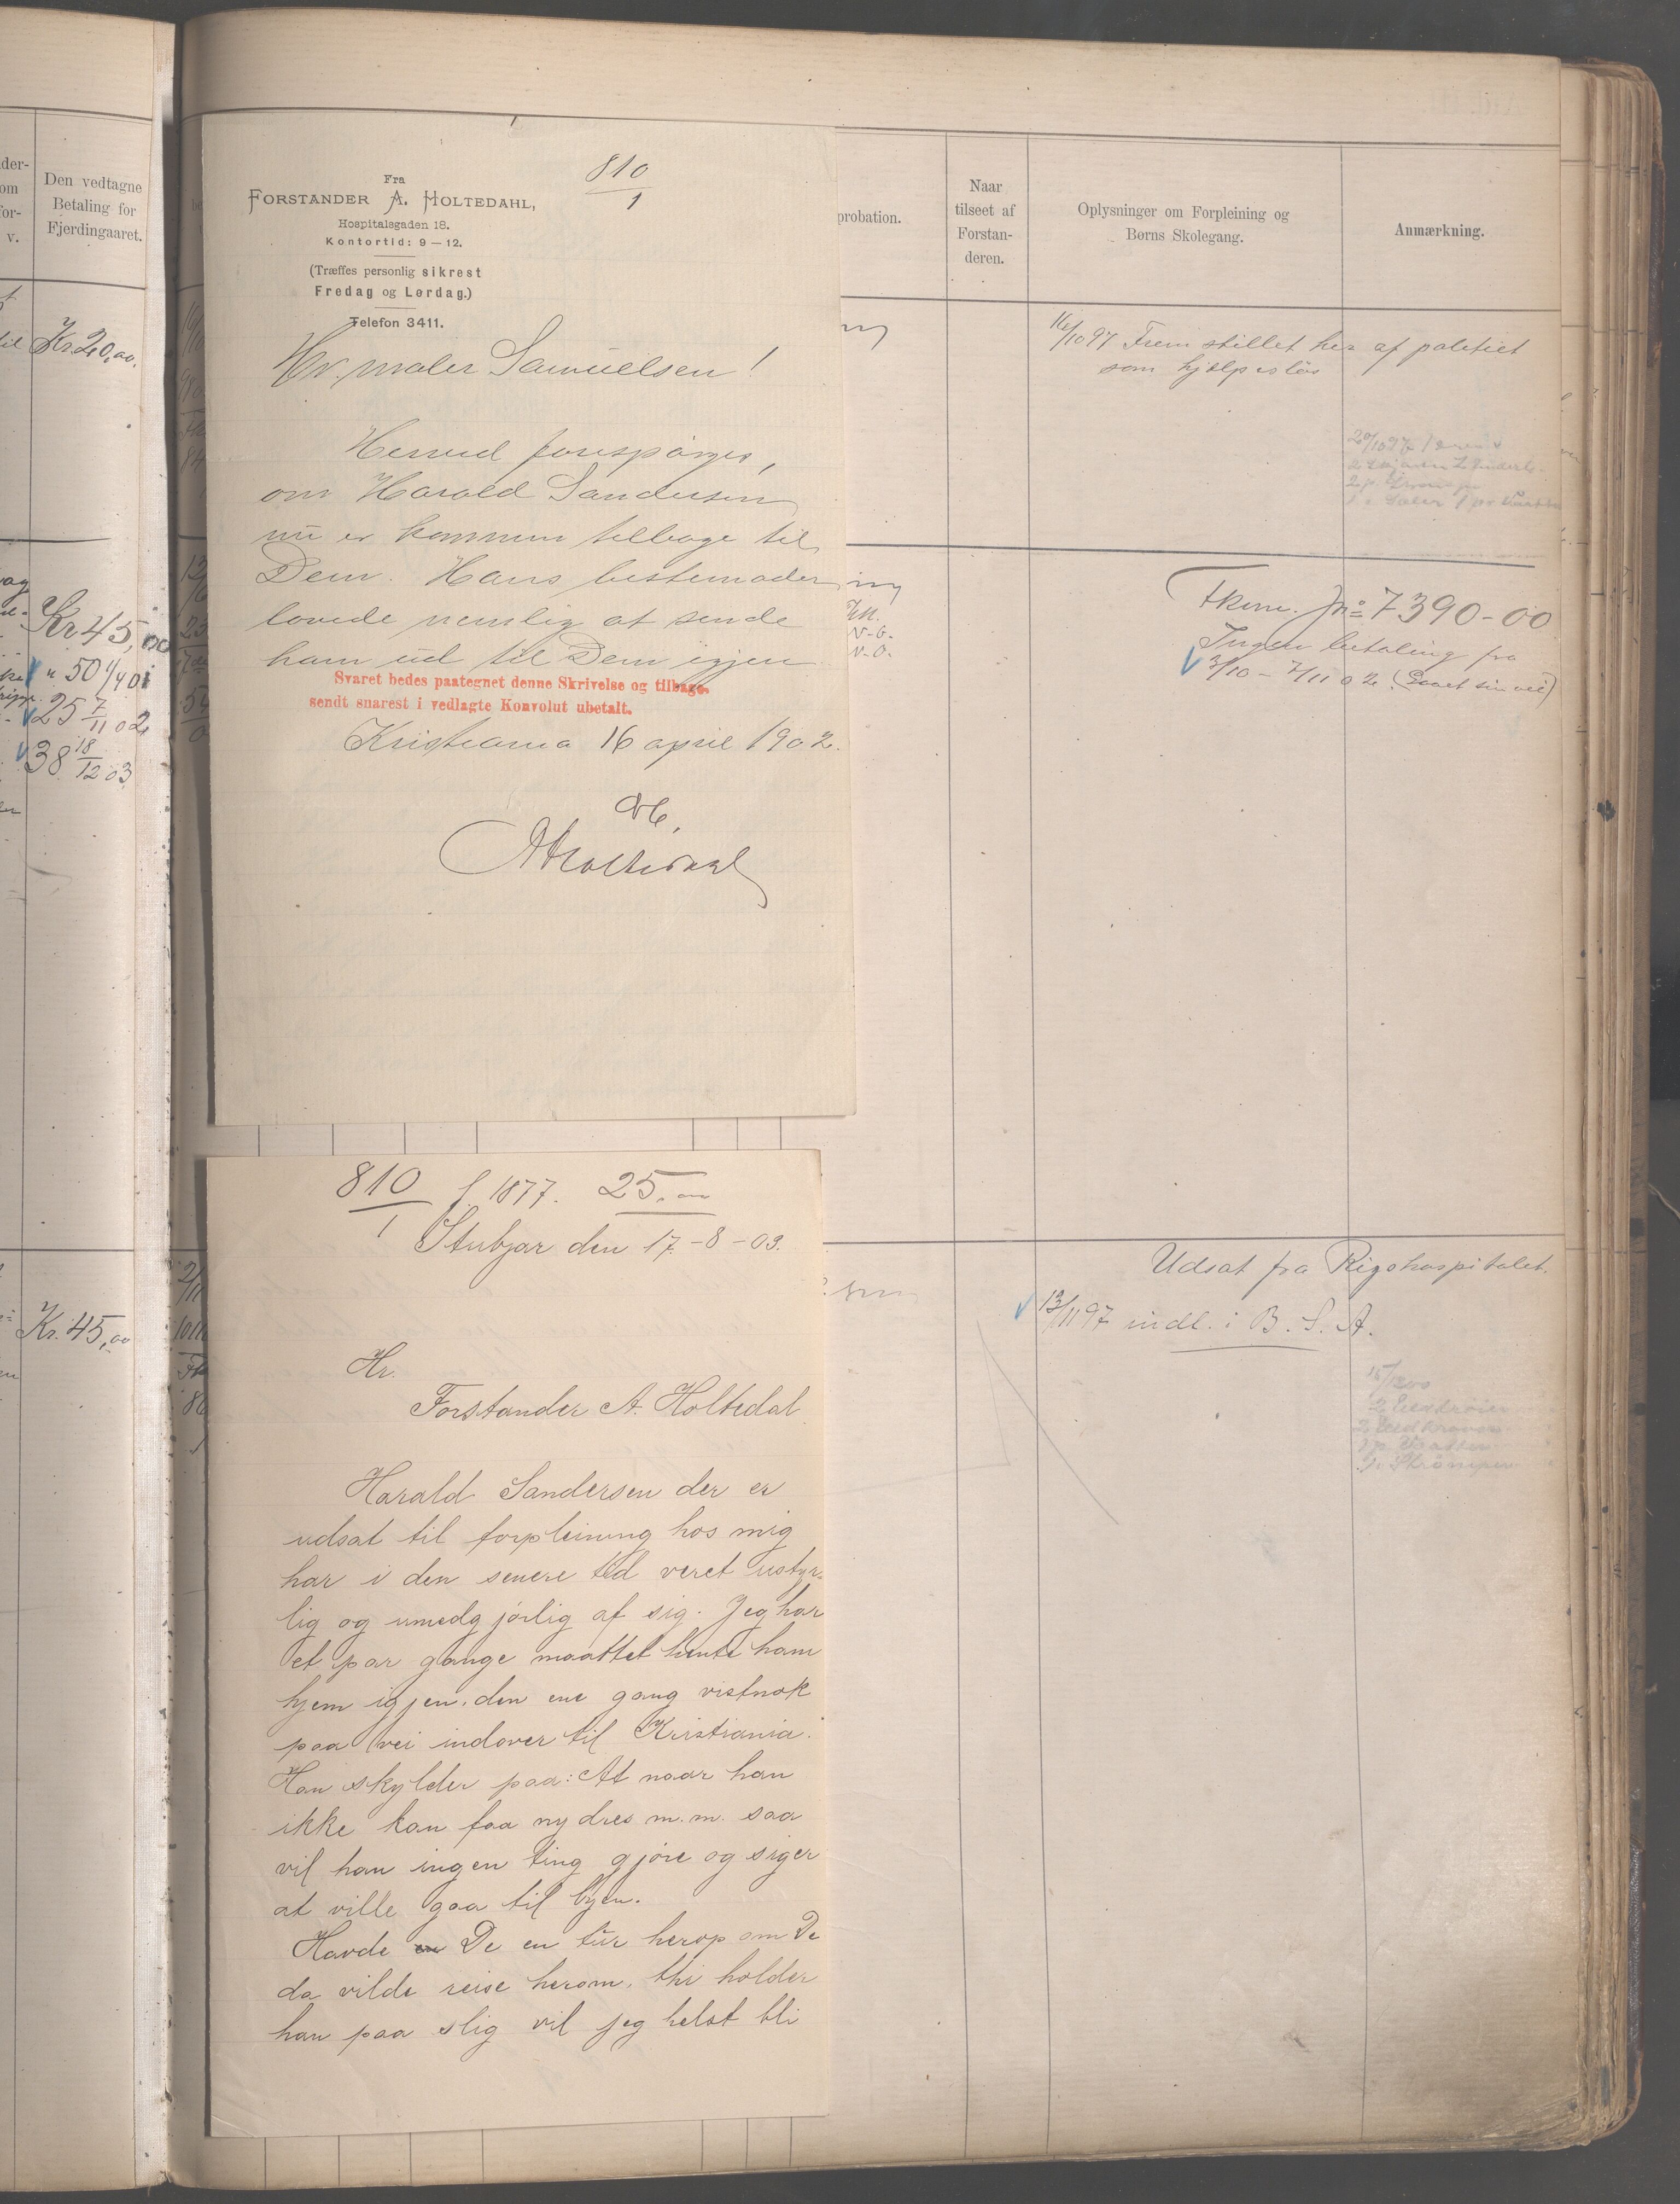 Den vedtagne
Betaling for
Fjerdingaaret.
Kr. 20,00.
Kr 45,00
" 50 1/4 01
25 7/11 02
38 18/12 03
Kr. 45,00
810
1
Fra
FORSTANDER A. HOLTEDAHL,
Hospitalsgaden 18.
Kontortid: 9 — 12.
(Træffes personlig sikrest
Fredag og Lørdag.)
Telefon 3411.
Hr. maler Samuelsen!
Herved forespørges,
om Harald Sandersen
nu er kommen tilbage til
Dem. Hans bestemoder
lovede nemlig at sende
ham ud til Dem igjen
Svaret bedes paategnet denne Skrivelse og tilbage-
sendt snarest i vedlagte Konvolut ubetalt.
Kristiania 16 april 1902.
AHoltedahl
810
1
f. 1877. 25,00
Stubjar den 17-8-03.
Hr.
Forstander A. Holtedal
Harald Sandersen der er
udsat til forpleining hos mig
har i den senere tid veret ustyr-
lig og umedgjørlig af sig. Jeg har
et par gange maattet hente ham
hjem igjen. den ene gang vistnok
paa vei indover til Kristiania.
Han skylder paa: At naar han
ikke kan faa ny dres m.m. saa
vil han ingen ting gjøre og siger
at ville gaa til byen.
Havde De en tur herop om De
da vilde reise herom, thi holder
han paa slig vil jeg helst bli
probation.
Naar
tilseet af
Forstan-
deren.
Oplysninger om Forpleining og
Børns Skolegang.
Anmærkning.
16/10 97 Fremstillet her af politiet
som hjælpeløs
Fkom. Jno 7390-00
Ingen betaling fra
3/10 - 7/11 02. (Gaaet sin vei)
Udsat fra Rigshospitalet.
13/11 97 indl. i B. S. A.